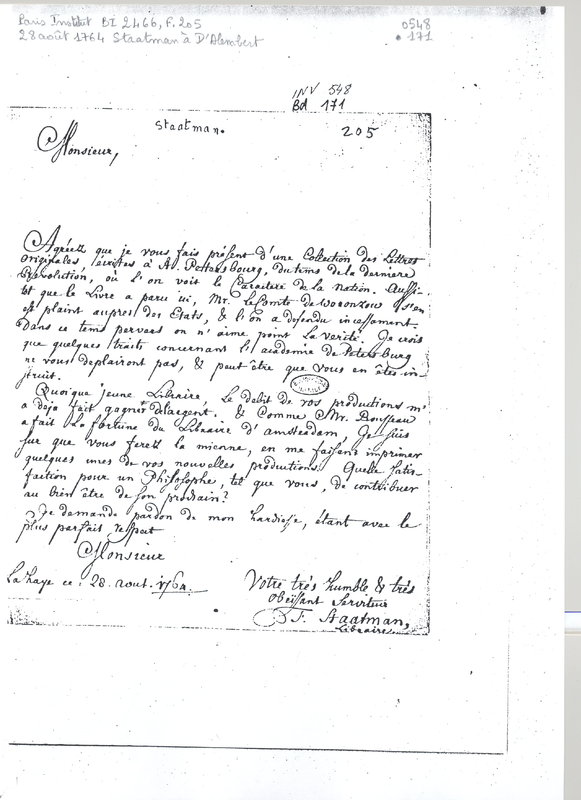 Paris Institut BI 2466, F. 205
28 août 1764 Staatman à D'Alembert
0548
171
INV 548
Bd 171
Staatman.
205
Monsieur,
Agréez que je vous fais présent d'une Collection des Lettres
originales écrites à St. Pettersbourg, du tems de la derniere
Révolution, où l'on voit le Caractere de la nation. Aussi-
tot que le Livre a paru ici, Mr. le Comte de Woronzow s'en
est plaint aupres des Etats, & l'on a defendu incessament.
Dans ce tems pervers on n'aime point la verité. Je crois
que quelques traits concernant l'academie de Petersburg
ne vous deplairont pas, & peut être que vous en êtes in-
struit.
Quoique jeune Libraire, le debit de vos productions m'
a deja fait gagner de largent. & Comme Mr. Rousseau
a fait la fortune du Libraire d'amsterdam, Je suis
sur que vous ferez la mienne, en me faisant imprimer
quelques unes de vos nouvelles productions. Quelle satis-
faction pour un Philosophe, tel que vous, de contribuer
au bien être de son prochain?
Je demande pardon de mon hardiesse, étant avec le
plus parfait respect
Monsieur
La haye ce 28. aout. 1764.
Votre trés humble & trés
Obeïssant Serviteur
F. Staatman,
Libraire.